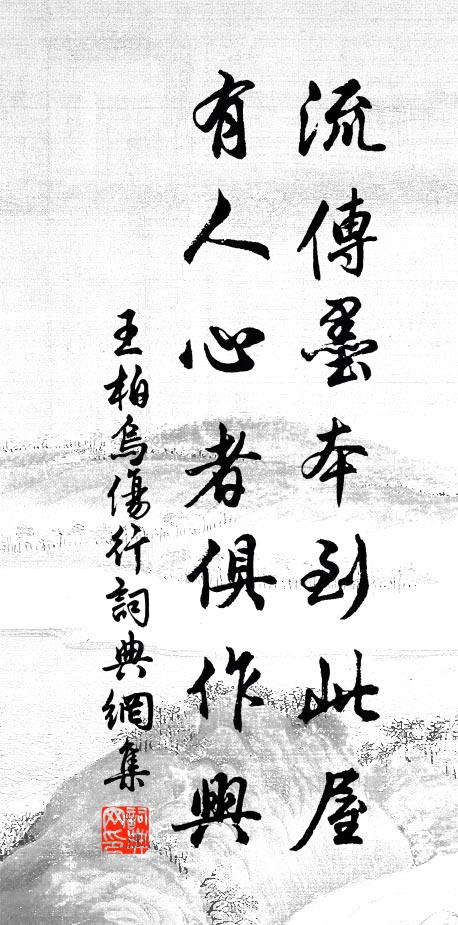 流傳墨本到此屋
有人心者俱作興
王柏烏傷行詞典網集